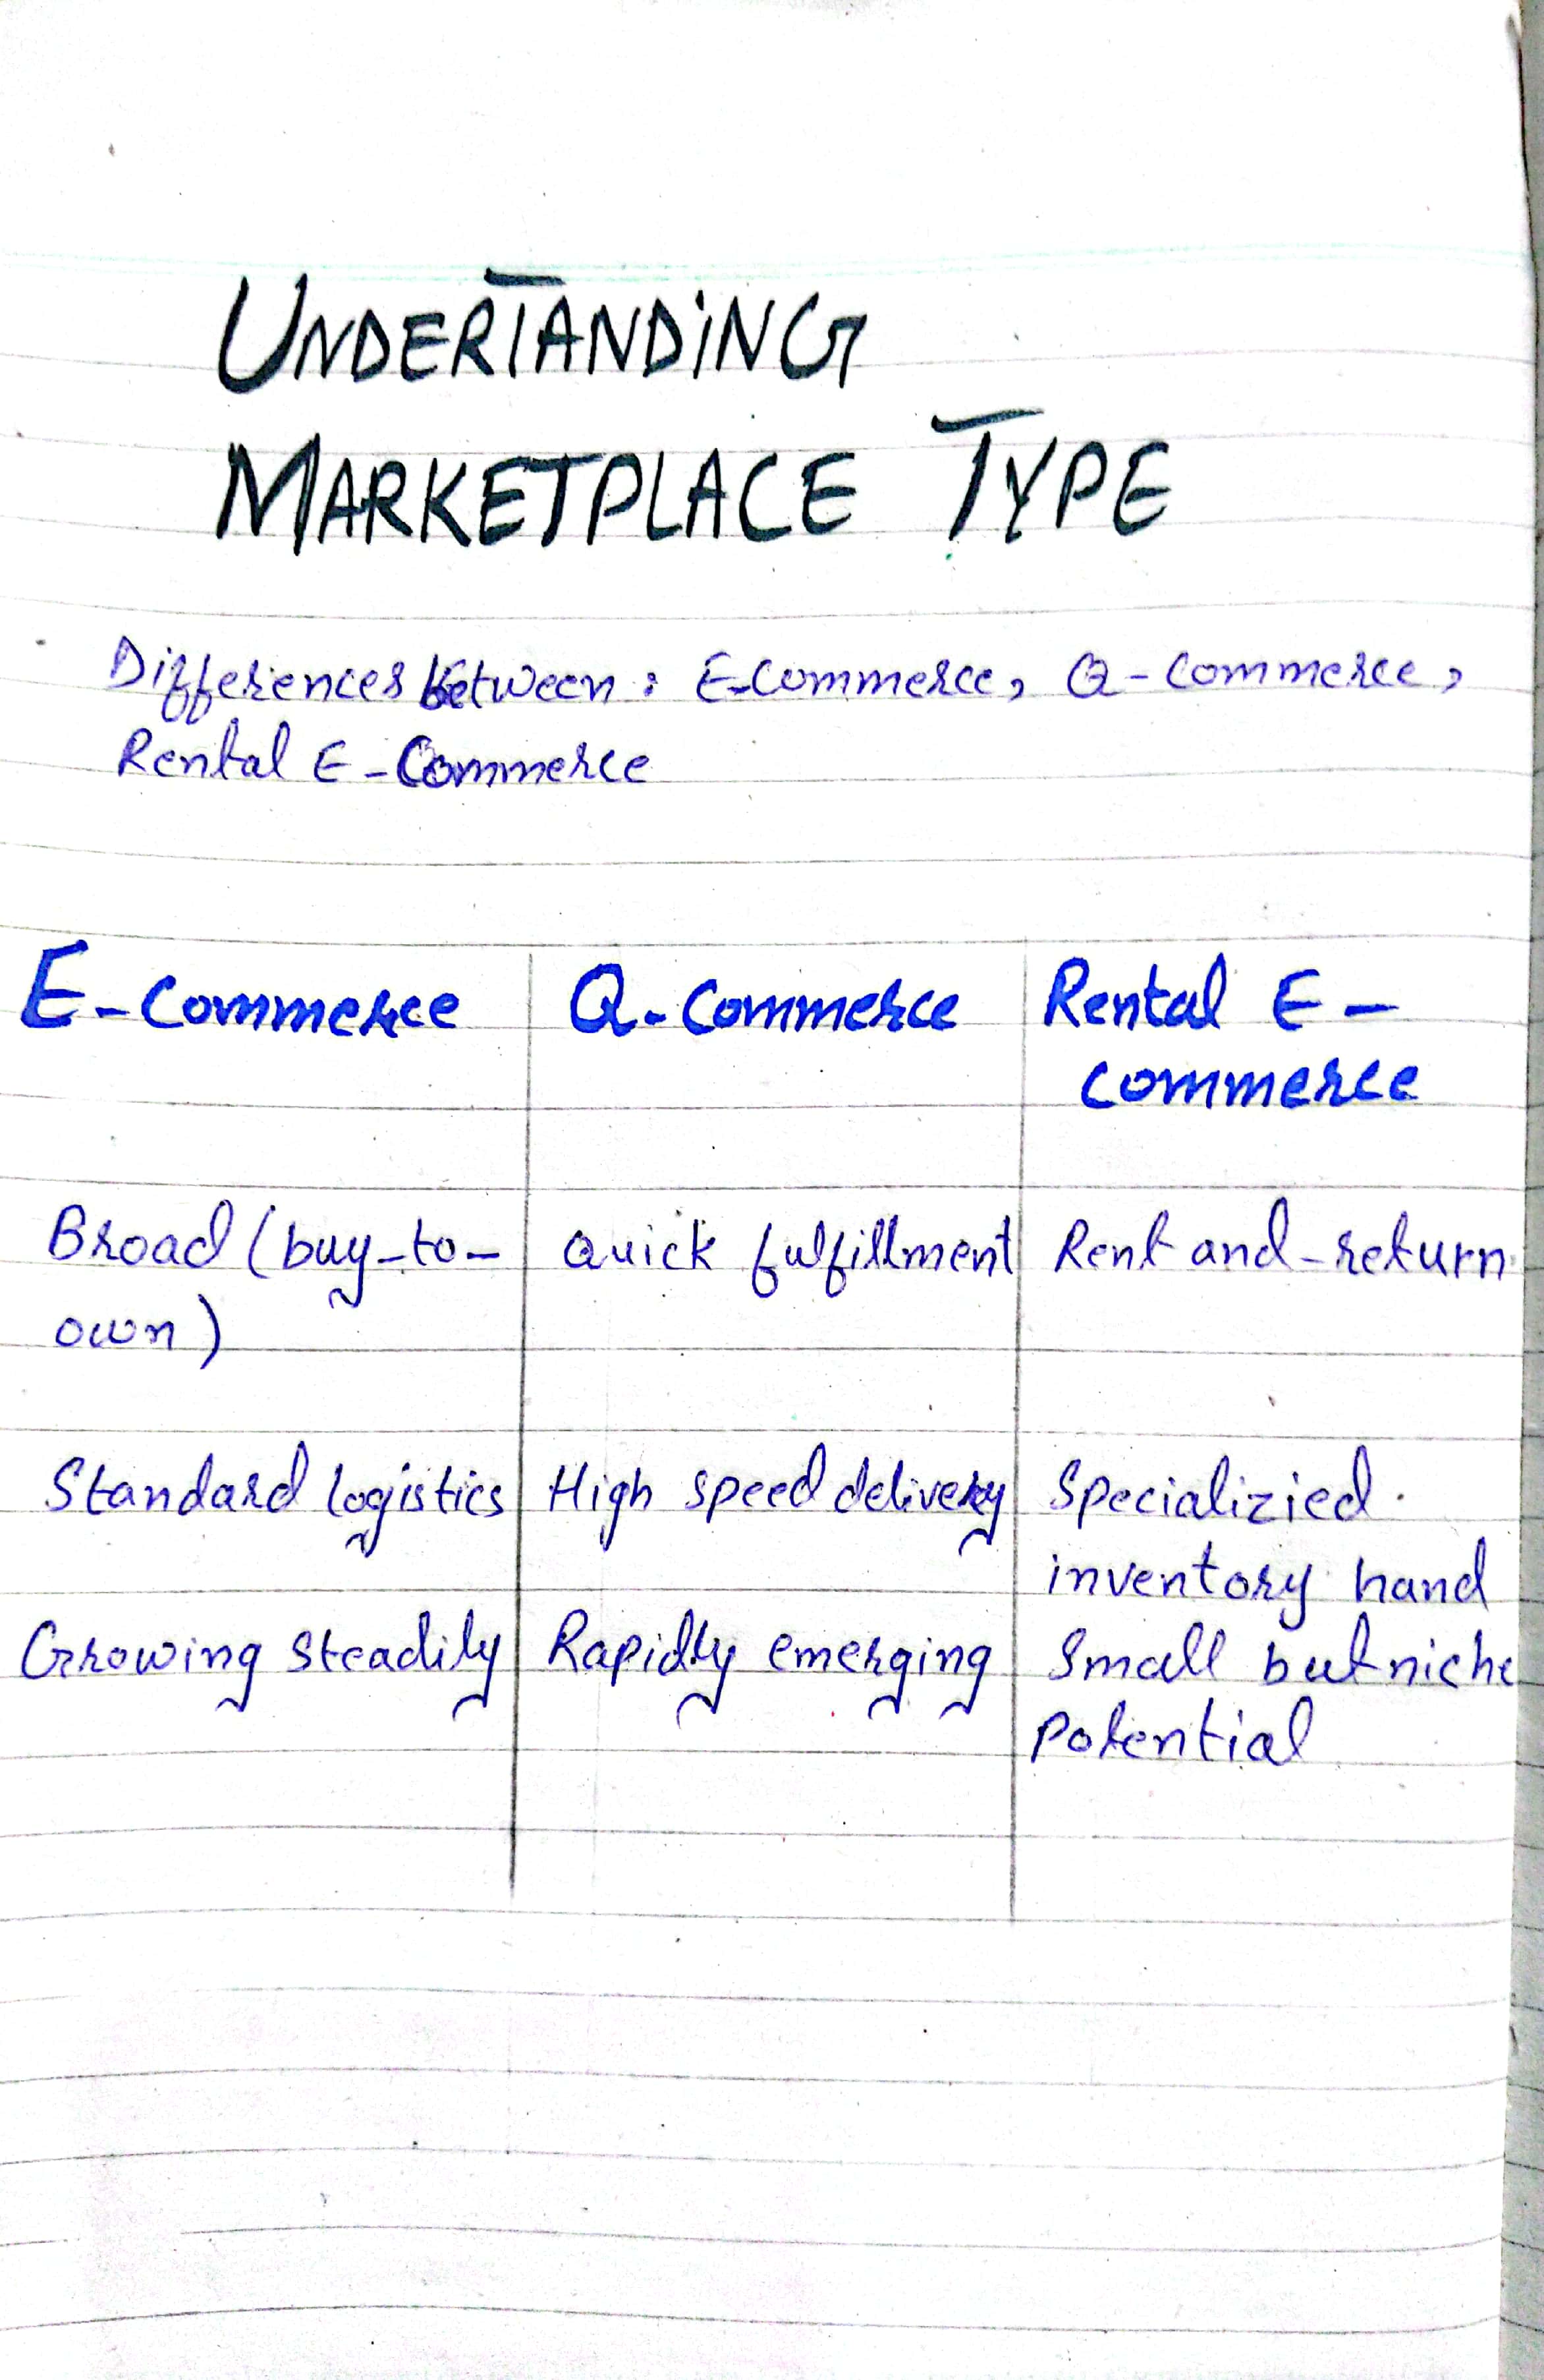 UNDERTANDING
MARKETPLACE TYPE
Differences between: E-Commerce, Q-Commerce,
Rental E-Commerce
E-Commerce Q-Commerce Rental E-
commerce
Broad (buy-to- Quick fulfillment Rent and-return
own)
Standard logistics High speed delivery Specializied
inventory hand
Growing steadily Rapidly emerging Small but niche
potential